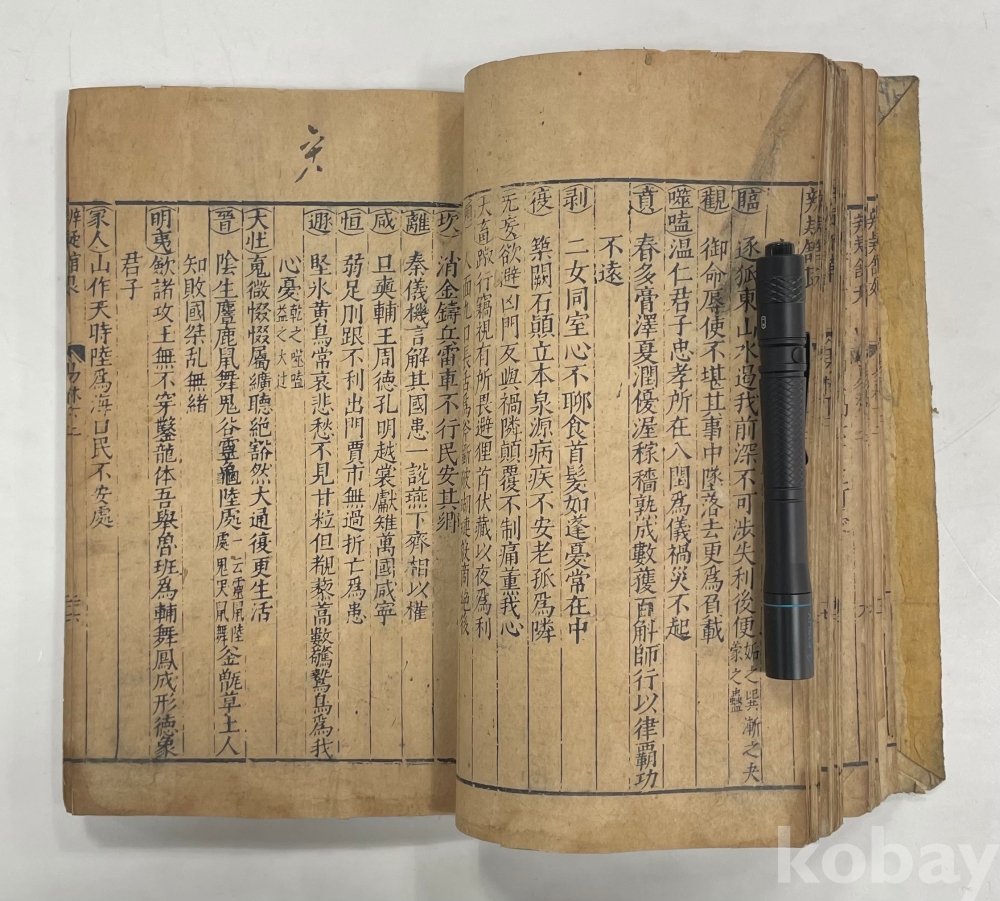 臨 逐狐東山水過我前深不可涉失利後便姤之巽漸之夬
觀 御命辱使不堪其事中墜落去更爲負載 蒙之蠱
噬嗑 温仁君子忠孝所在入閨爲儀禍災不起
賁 春多膏澤夏潤優渥稼穡熟成數獲百斛師行以律覇功
不遠
剥 二女同室心不聊食首髮如蓬憂常在中
復 築闕石顛立本泉源病疾不安老孤爲隣
无妄 欲避凶門反與禍隣顛覆不制痛重我心
大畜 行竊視有所畏避狸首伏藏以夜爲利
坎 消金鑄兵雷車不行民安其鄉
離 秦儀機言解其國患一說燕下齊相以權
咸 旦奭輔王周德孔明越裳獻雉萬國咸寧
恒 弱足刖跟不利出門賈市無過折亡爲患
遯 堅氷黃鳥常哀悲愁不見甘粒但覩藜蒿數驚鷙鳥爲我
心憂 乾之噬嗑 益之大壮
大壮 蒐微惙惙屬纊聽絶豁然大通復更生活
晉 陰生麏鹿鼠舞鬼谷靈龜陸處 一云靈龜陸處鬼哭鼠舞 釜甑草土人
知敗國桀乱無緒
明夷 欽諸攻王無不穿鑿龍体吾舉魯班爲輔舞鳳成形德象
君子
家人 山作天時陸爲海口民不安處
kobay